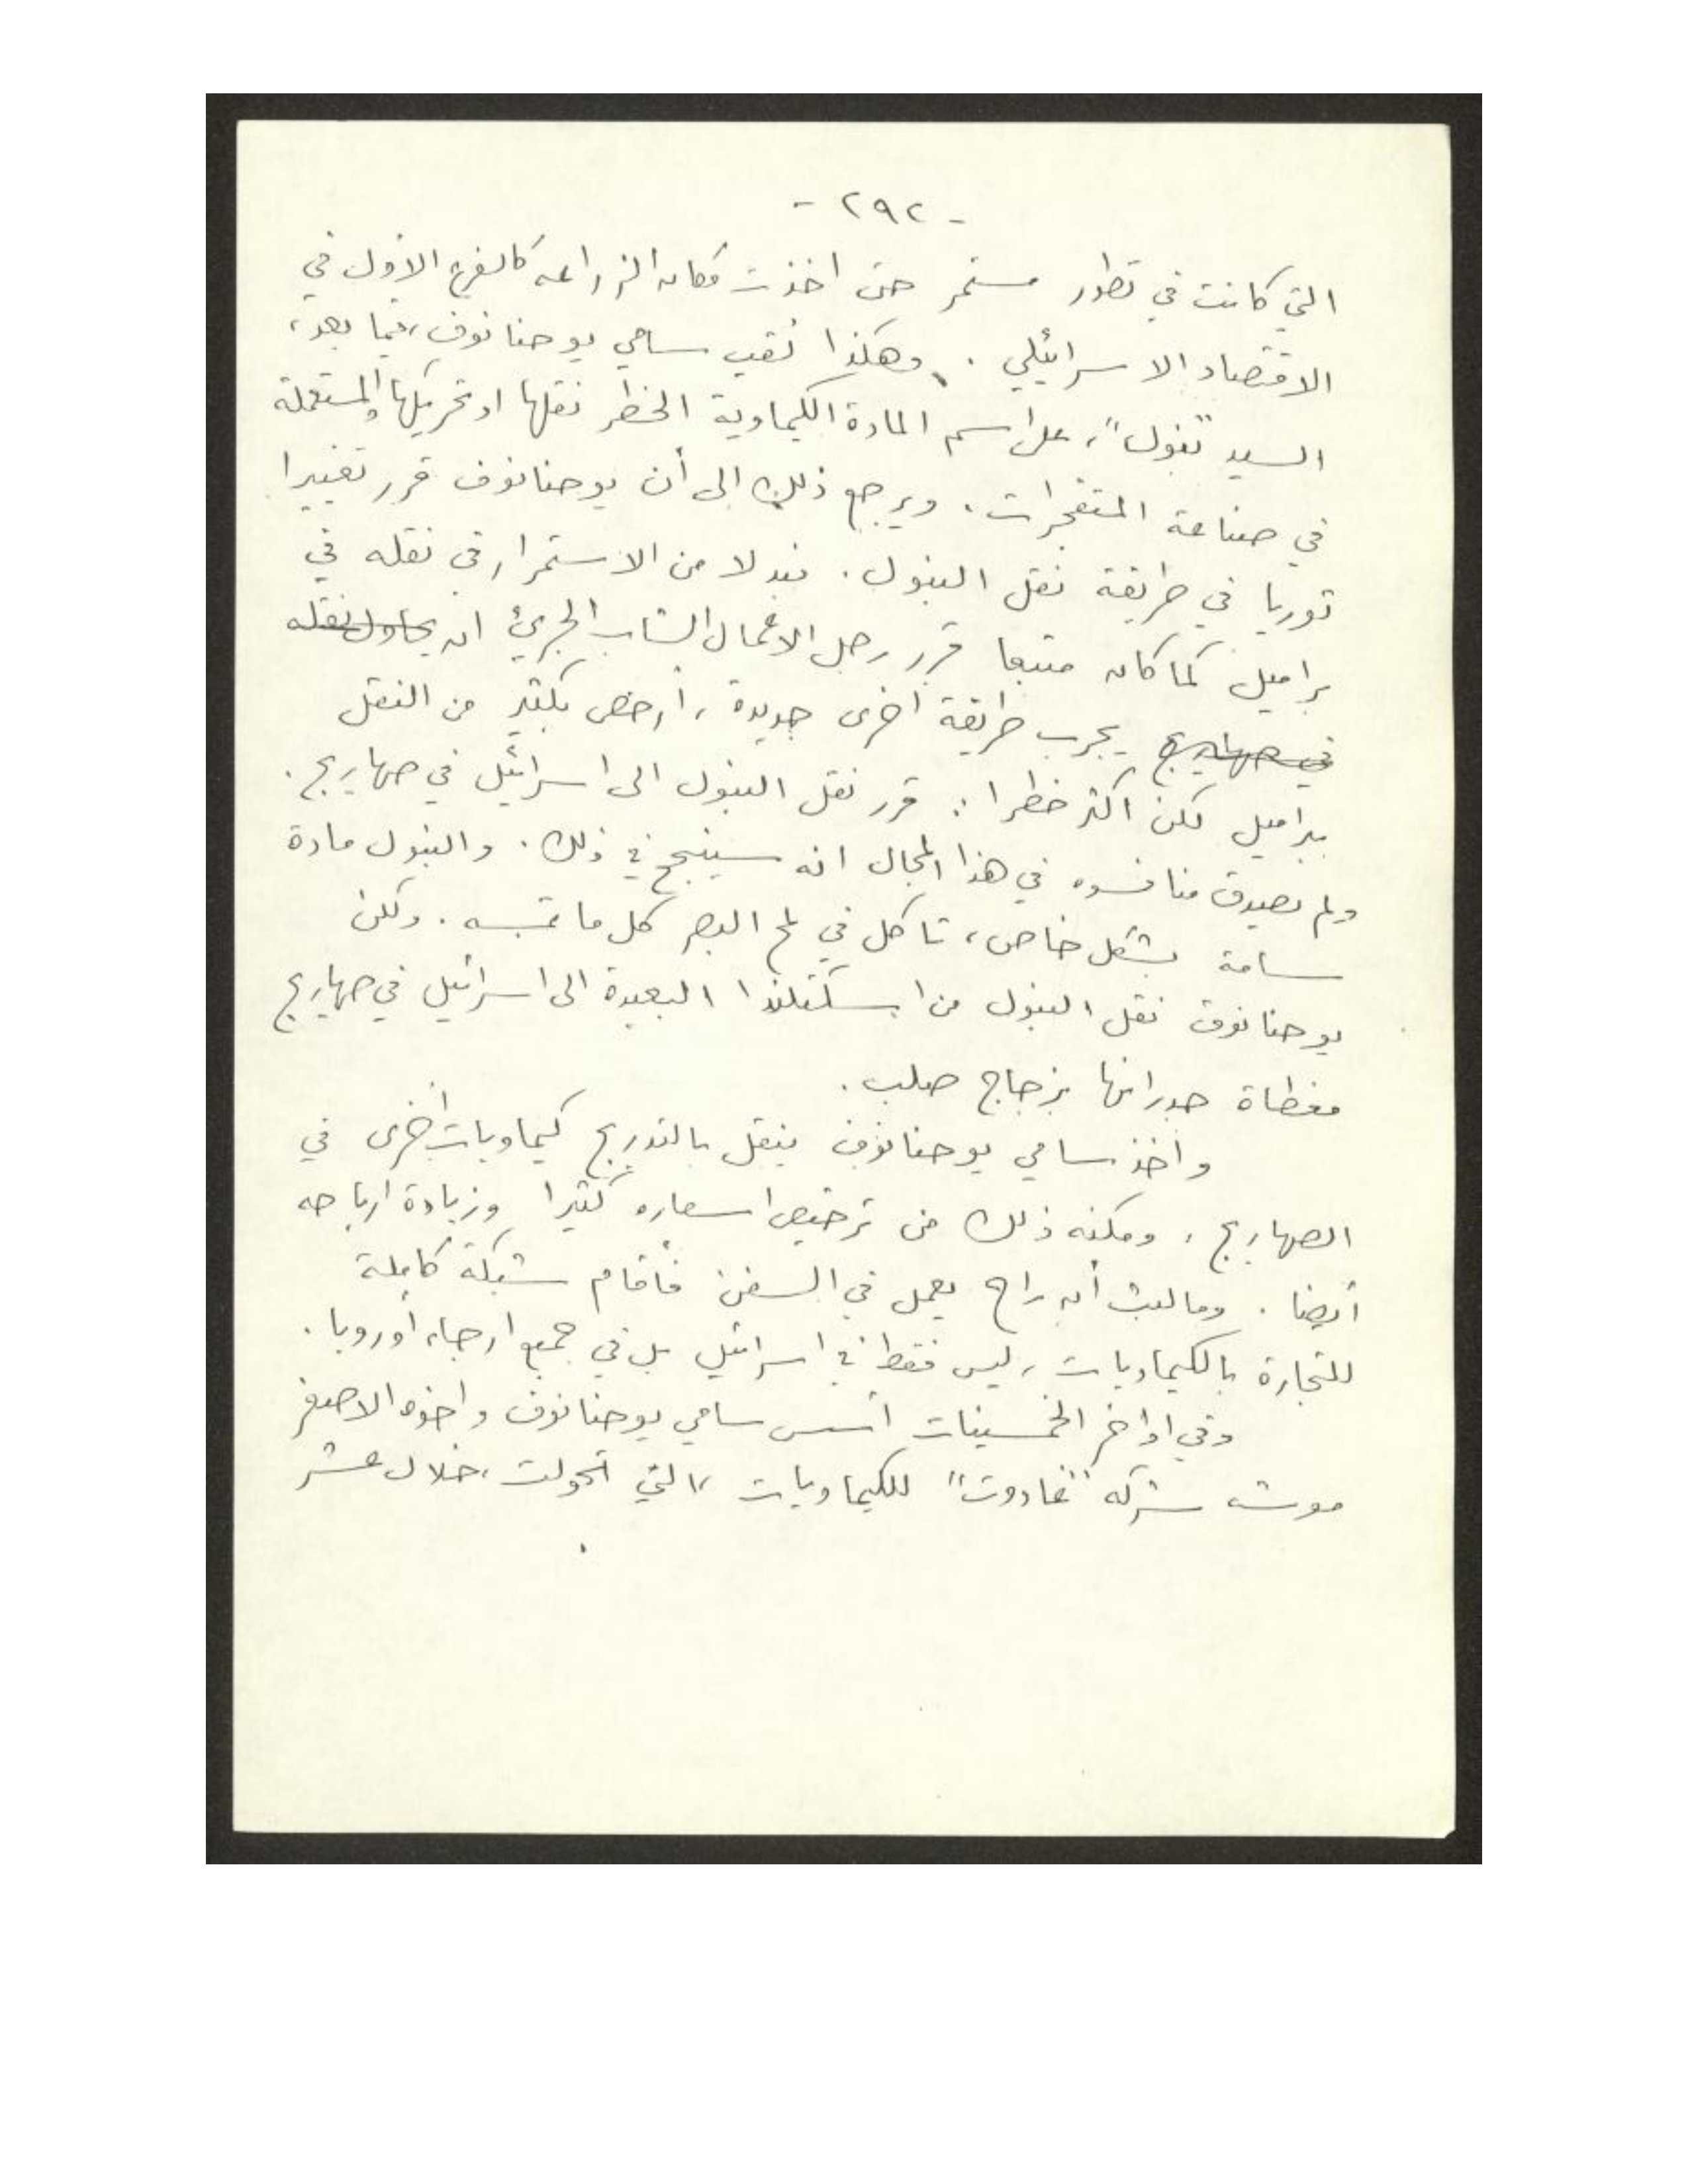 - ٢٩٢ -
التي كانت في تطور مستمر حتى اخذت مكان الزراعه كالفرع الاول في
الاقتصاد الاسرائيلي . وهكذا لقب سامي يوحنانوف، فيما بعد،
السيد "فنول"، على اسم المادة الكيماوية الخطر نقلها او تحريكها والمستعملة
في صناعة المتفجرات. ويرجع ذلك الى أن يوحنانوف قرر تغييرا
ثوريا في طريقة نقل الفنول. فبدلا من الاستمرار في نقله في
براميل كما كان متبعا قرر رجل الاعمال الشاب الجريئ ان يحاول نقله
في صهاريج يجرب طريقة اخرى جديدة، أرخص بكثير من النقل
ببراميل لكن اكثر خطرا : قرر نقل الفنول الى اسرائيل في صهاريج.
ولم يصدق منافسوه في هذا المجال انه سينجح في ذلك. والفنول مادة
سامة بشكل خاص، تأكل في لمح البصر كل ما تمسه. ولكن
يوحنانوف نقل الفنول من اسكتلندا البعيدة الى اسرائيل في صهاريج
مغطاة جدرانها بزجاج صلب.
وأخذ سامي يوحنانوف ينقل بالتدريج كيماويات أخرى في
الصهاريج، ومكنه ذلك من ترخيص اسعاره كثيرا وزيادة ارباحه
أيضا. وما لبث أن راح يعمل في السفن فأقام شبكة كاملة
للتجارة بالكيماويات، ليس فقط في اسرائيل بل في جميع ارجاء أوروبا.
وفي اواخر الخمسينات أسس سامي يوحنانوف واخوه الاصغر
موشه شركه "غادوت" للكيماويات، التي تحولت، خلال عشر